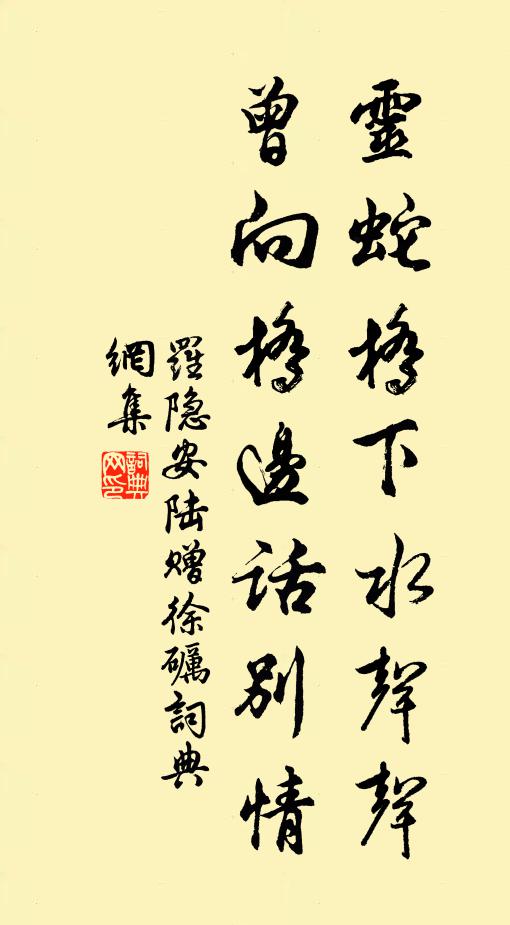 靈蛇橋下水聲聲
曾向橋邊話別情
羅隐安陆赠徐礪詞典
網集
詞典
网印